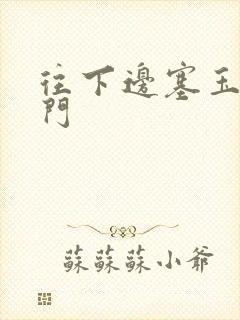 往下邊塞玉
門
蘇蘇蘇小爺